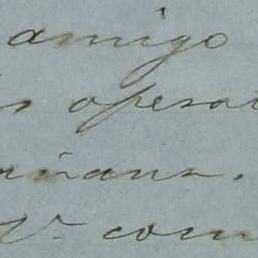 amigo
s operat
añana.
V. com